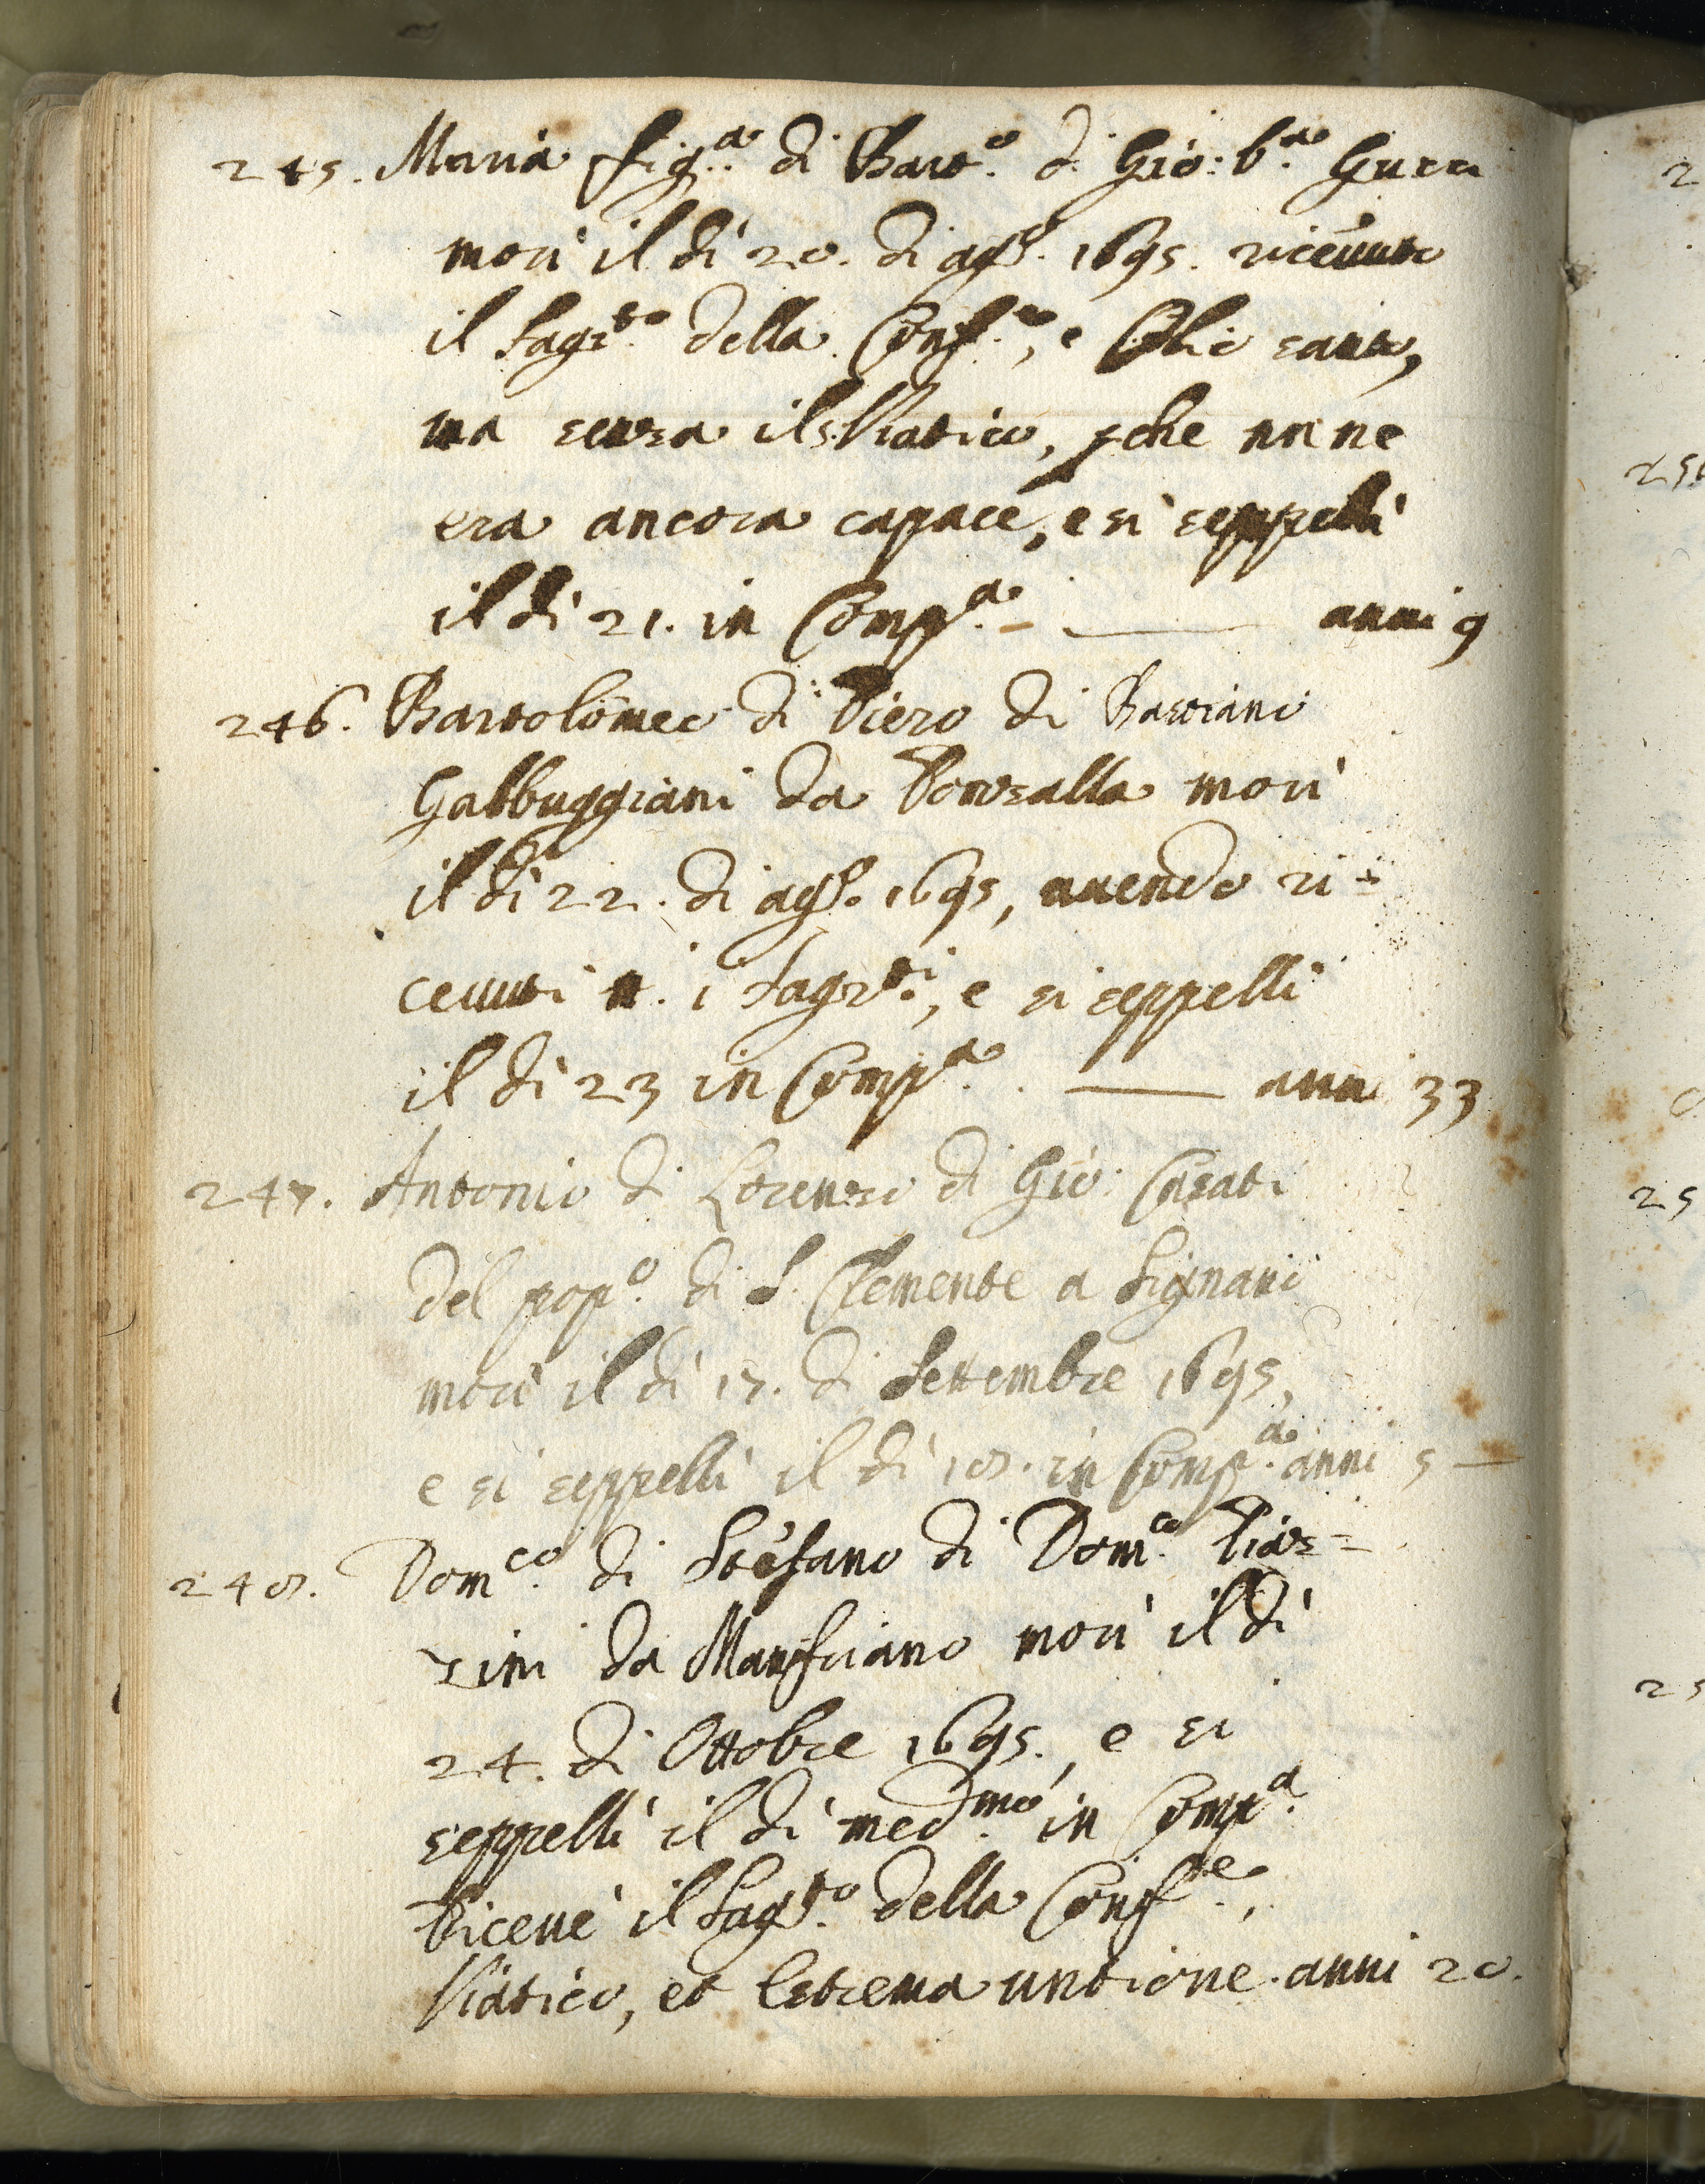 245. Maria fig.a di Bart.o di Gio: b.a Gucci
morì il dì 20. di ag.o 1695. riceuuto
il Sagr.to della Conf.e, e Olio santo,
ma senza il S. Viatico, perche non ne
era ancora capace, e si seppellì
il dì 21. in Comp.a — anni 9
246. Bartolomeo di Piero di Bastiano
Gabbuggiani da Torsalla morì
il dì 22. di ag.o 1695, auendo ri=
ceuuti tt. i Sagr.ti, e si seppellì
il dì 23 in Comp.a — anni 33
247. Antonio di Lorenzo di Gio: Cosati
del pop.o di S. Clemente a Signano
morì il dì 17. di Settembre 1695,
e si seppellì il dì 18. in Comp.a anni 5 —
248. Dom.co di Stefano di Dom.co
da Marciano morì il dì
24. di Ottobre 1695., e si
seppellì il dì med.mo in Comp.a
Riceuè il Sagr.to della Conf.e,
Viatico, et Estrema untione. anni 20.